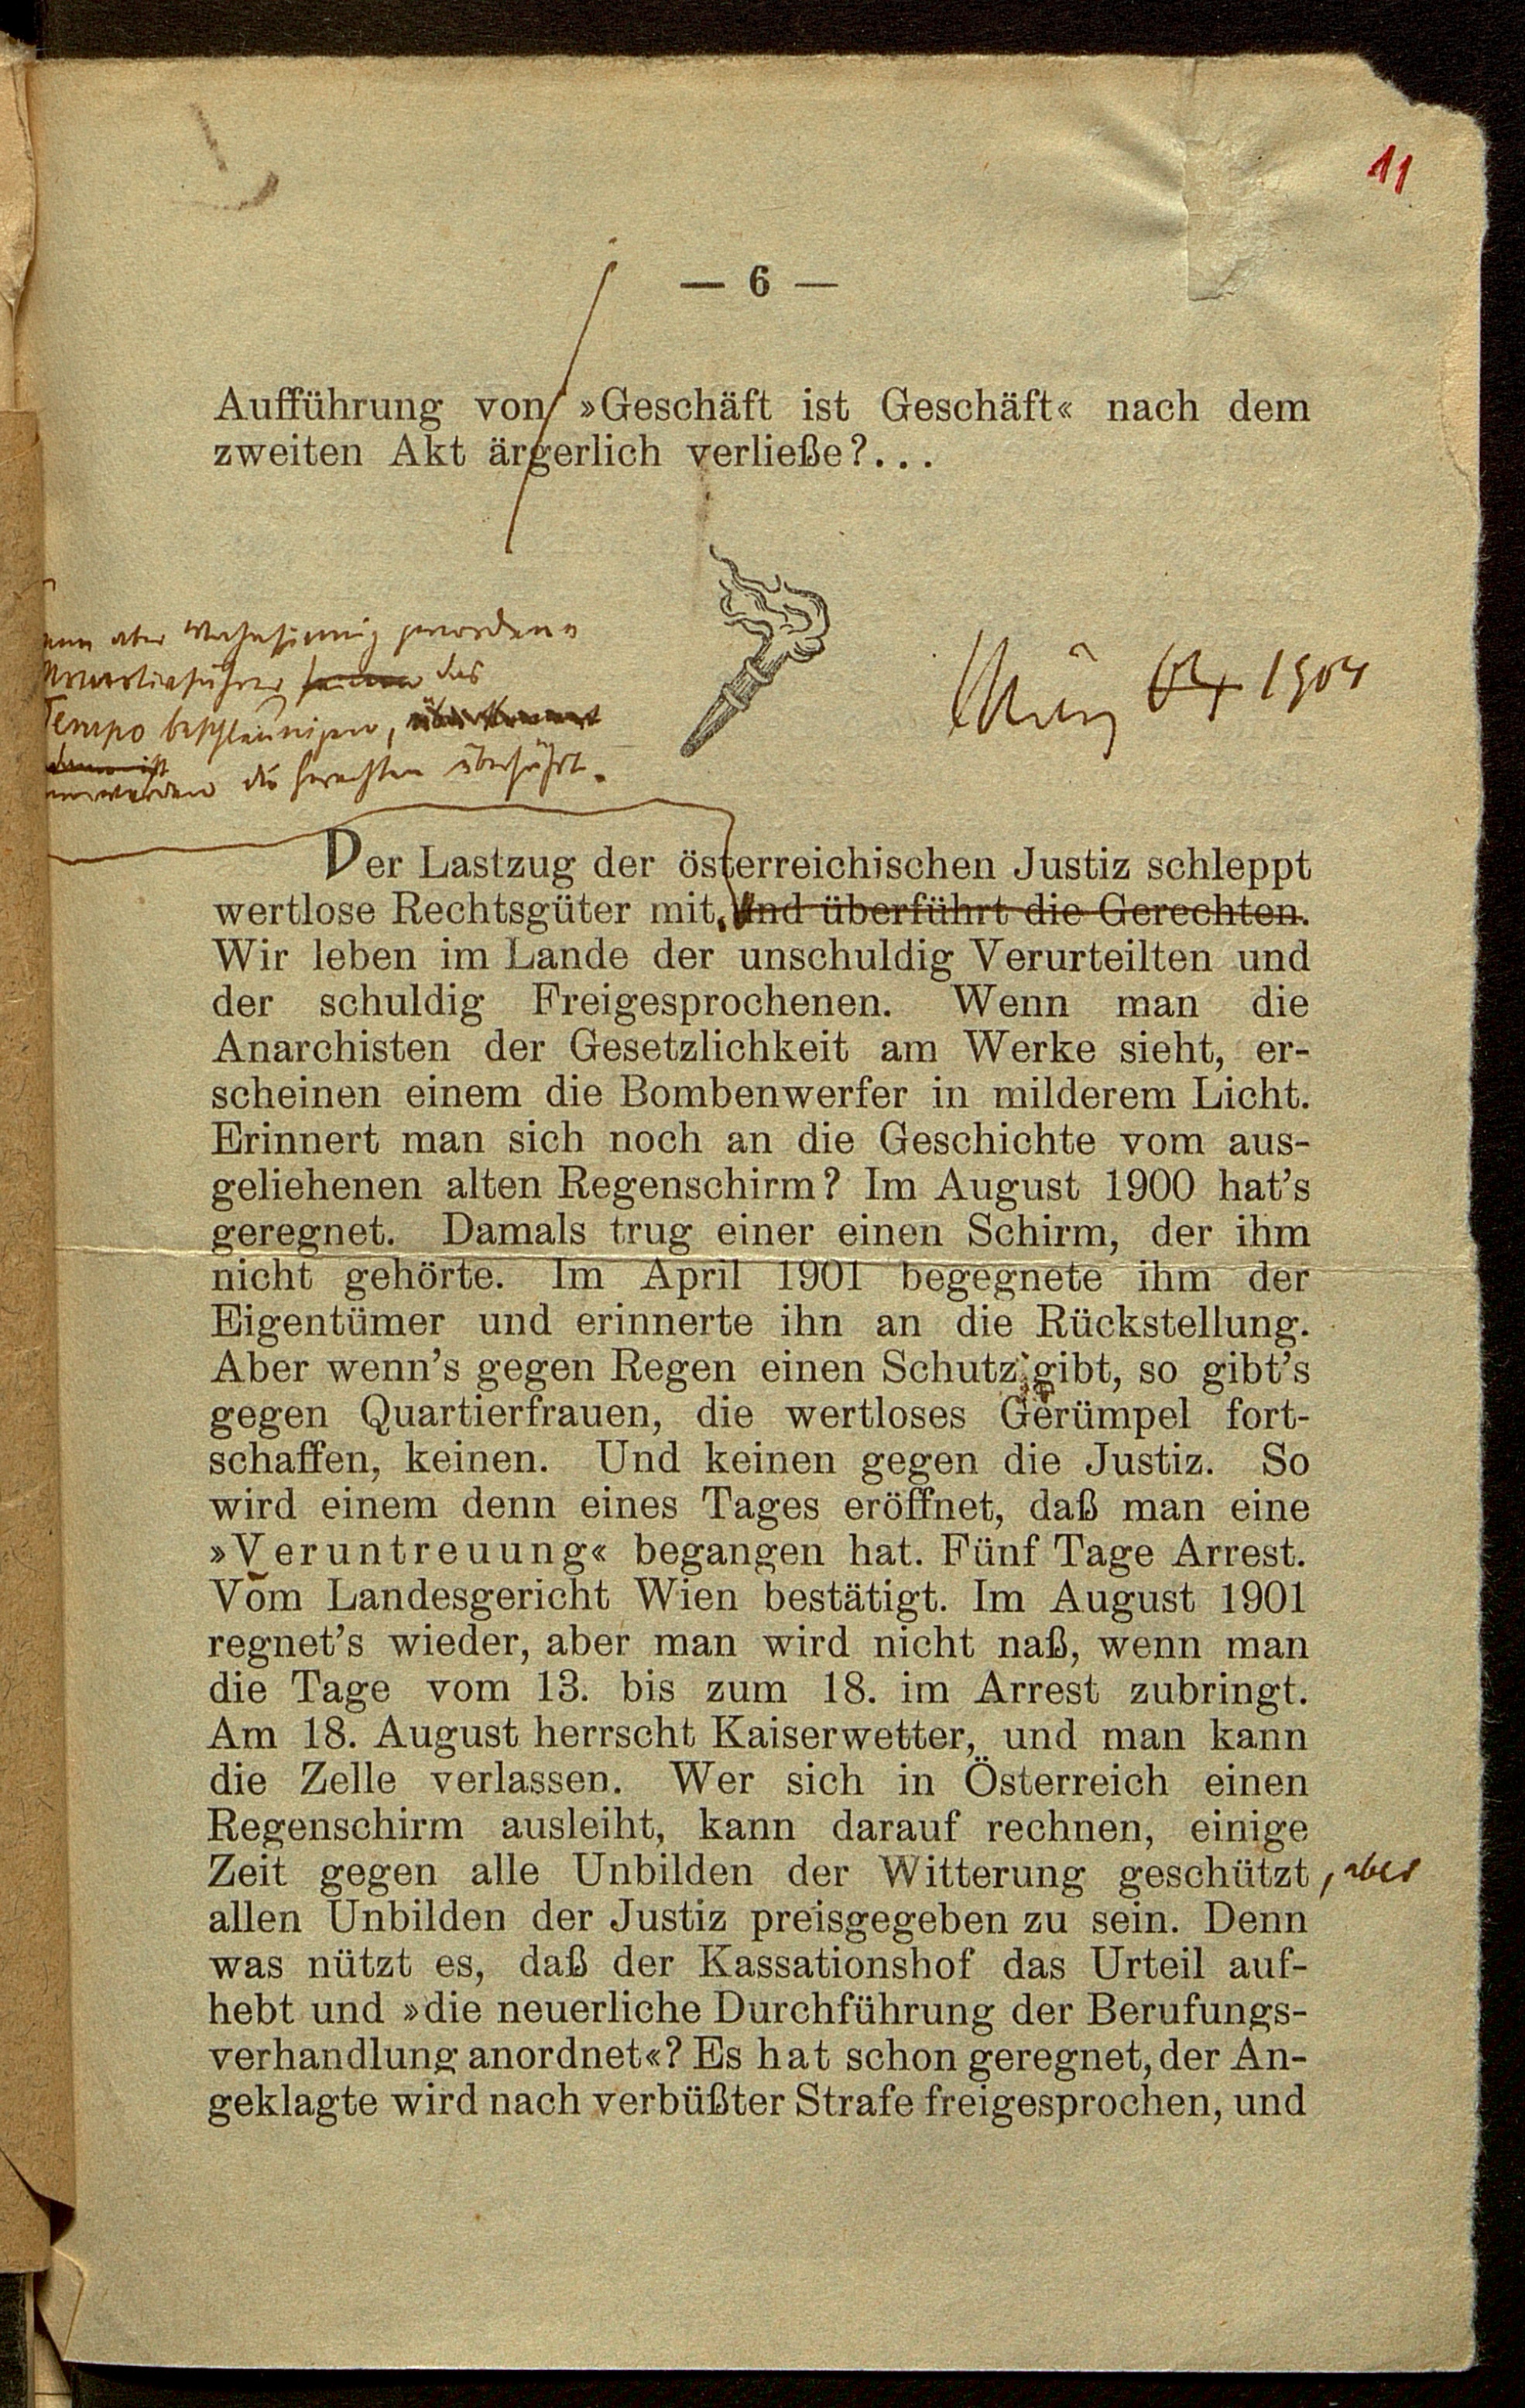 11
— 6 —
Aufführung von »Geschäft ist Geschäft« nach dem
zweiten Akt ärgerlich verließe?...
aber wahnsinnig gewordene
das
Tempo beschleunigen,
werden die Gerechten überführt.
März 04 1904
Der Lastzug der österreichischen Justiz schleppt
wertlose Rechtsgüter mit. und überführt die Gerechten.
Wir leben im Lande der unschuldig Verurteilten und
der schuldig Freigesprochenen. Wenn man die
Anarchisten der Gesetzlichkeit am Werke sieht, er-
scheinen einem die Bombenwerfer in milderem Licht.
Erinnert man sich noch an die Geschichte vom aus-
geliehenen alten Regenschirm? Im August 1900 hat's
geregnet. Damals trug einer einen Schirm, der ihm
nicht gehörte. Im April 1901 begegnete ihm der
Eigentümer und erinnerte ihn an die Rückstellung.
Aber wenn's gegen Regen einen Schutz gibt, so gibt's
gegen Quartierfrauen, die wertloses Gerümpel fort-
schaffen, keinen. Und keinen gegen die Justiz. So
wird einem denn eines Tages eröffnet, daß man eine
»Veruntreuung« begangen hat. Fünf Tage Arrest.
Vom Landesgericht Wien bestätigt. Im August 1901
regnet's wieder, aber man wird nicht naß, wenn man
die Tage vom 13. bis zum 18. im Arrest zubringt.
Am 18. August herrscht Kaiserwetter, und man kann
die Zelle verlassen. Wer sich in Österreich einen
Regenschirm ausleiht, kann darauf rechnen, einige
Zeit gegen alle Unbilden der Witterung geschützt, aber
allen Unbilden der Justiz preisgegeben zu sein. Denn
was nützt es, daß der Kassationshof das Urteil auf-
hebt und »die neuerliche Durchführung der Berufungs-
verhandlung anordnet«? Es hat schon geregnet, der An-
geklagte wird nach verbüßter Strafe freigesprochen, und